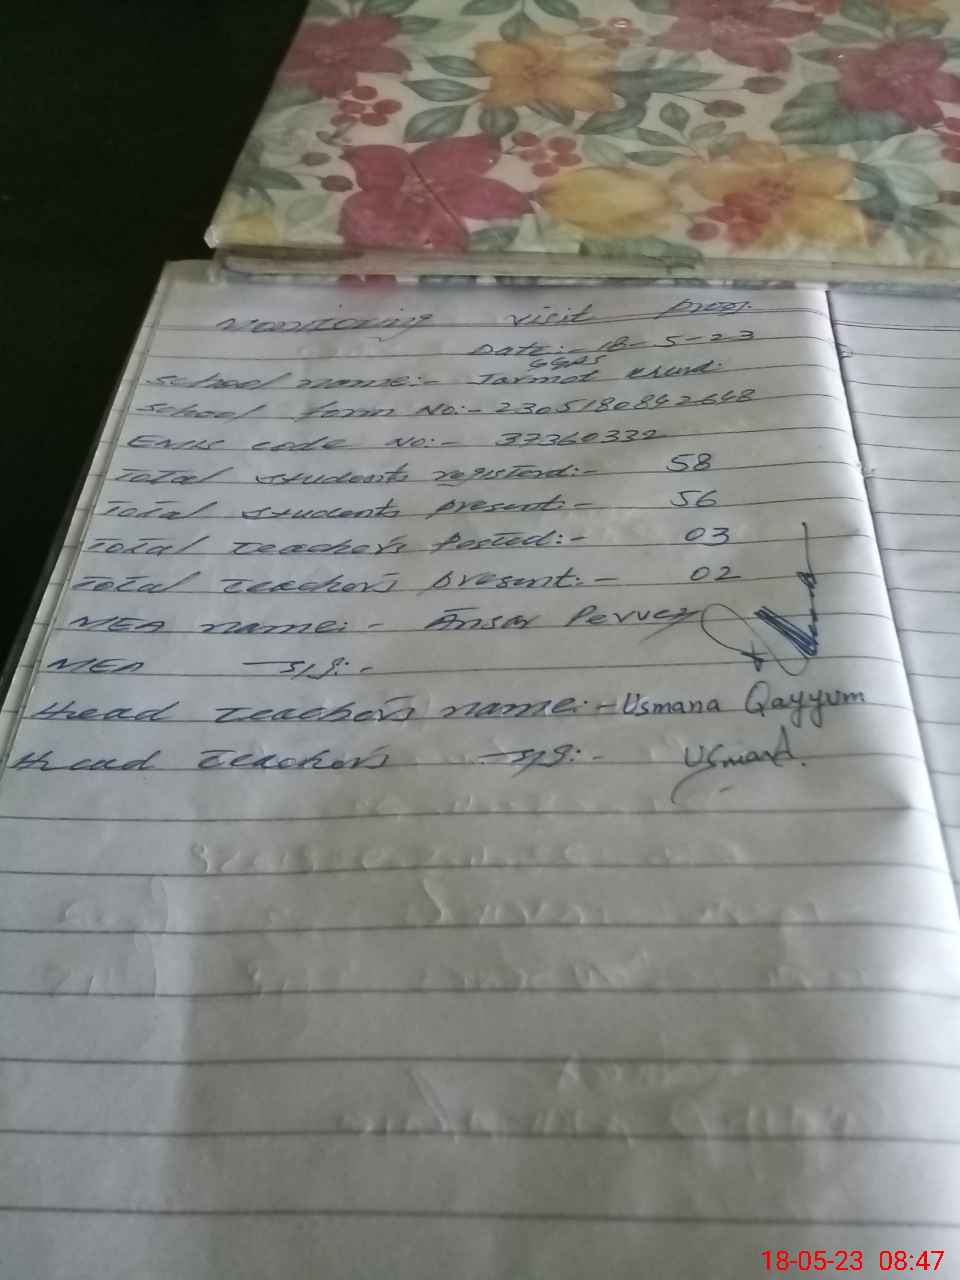 Monitoring visit proof.
Date:- 18-5-23
GGPS
School name:- Jarmot
School form No:- 2305180842648
EMIS code No:- 37360332
Total students registerd:- 58
Total students present:- 56
Total teacher's Posted:- 03
Total teacher's present:- 02
MEA name:- Ansar Pervez
MEA sig:-
Head teacher's name:- Usmana Qayyum
Head teacher's sig:- Usmana.
18-05-23 08:47